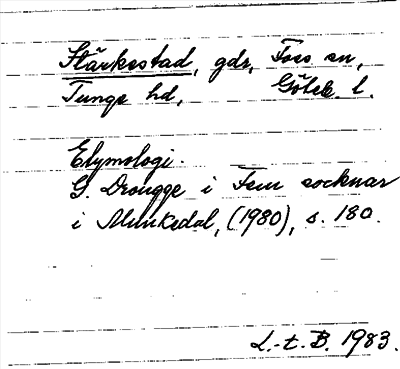 Stärkestad, gds, Foss sn,
Tunge hd, Göteb. l.
Etymologi.
G. Drougge i Fem socknar
i Munkedal, (1980), s. 180.
L.-t. B. 1983.